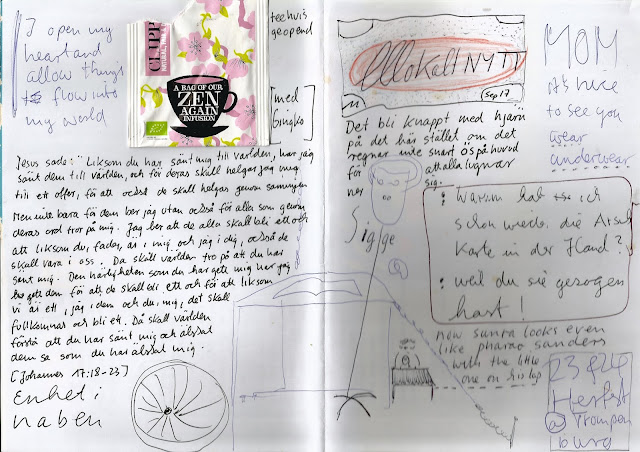 I open my
heart and
allow things
to flow into
my world
CLIPP
A BAG OF OUR
ZEN
AGAIN
INFUSION
teehuis
geopend
[med
bingko]
Jesus sade: "Liksom du har sänt mig till världen, har jag
sänt dem till världen, och för deras skull helgar jag mig
till ett offer, för att också de skall helgas genom sanningen
Men inte bara för dem ber jag utan också för alla som genom
deras ord tror på mig. Jag ber att de alla skall bli ett och
att liksom du, fader, är i mig och jag i dig, också de
skall vara i oss. Då skall världen tro på att du har
sänt mig. Den härligheten som du har gett mig har jag
gett dem för att de skall bli ett och för att liksom
vi är ett, jag i dem och du i mig, det skall
fullkomnas och bli ett. Då skall världen
förstå att du har sänt mig och älskat
dem så som du har älskat mig.
[Johannes 17:18-23]
Enhet i
naben
lllokalt NYTT
Sep 17
Det bli knappt med hjärn
på det här stället om det
regnar inte snart ös på huvud
för att alla lugnar
ner sig.
Sigge
MOM
it's here
to see you
wear
underwear
: Warum hab ich
schon wieder die Arsch
Karte in der Hand?
: weil du sie gezogen
hast!
new sunra looks even
like pharao sanders
with the little
one on his lap
23 & 24
Herfst
@ Trompen
burg